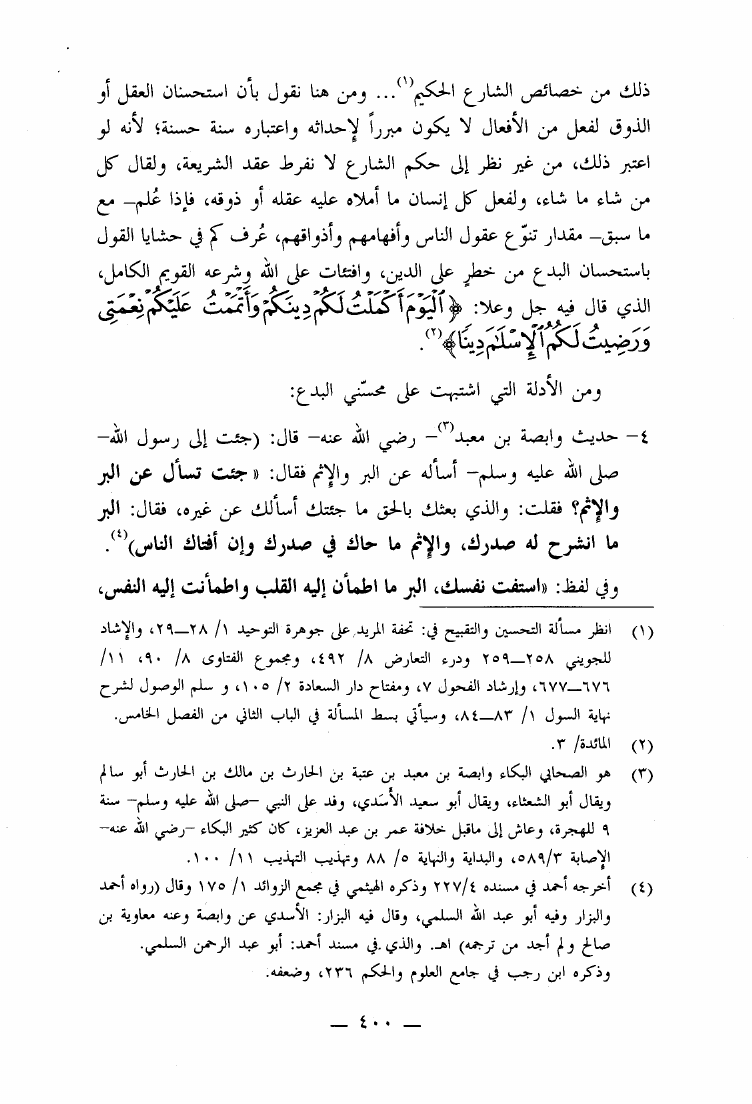 ذلك من خصائص الشارع الحكيم(١)... ومن هنا نقول بأن استحسنان العقل أو
الذوق لفعل من الأفعال لا يكون مبرراً لإحداثه واعتباره سنة حسنة؛ لأنه لو
اعتبر ذلك، من غير نظر إلى حكم الشارع لا نفرط عقد الشريعة، ولقال كل
من شاء ما شاء، ولفعل كل إنسان ما أملاه عليه عقله أو ذوقه، فإذا عُلم– مع
ما سبق– مقدار تنوّع عقول الناس وأفهامهم وأذواقهم، عُرف كم في حشايا القول
باستحسان البدع من خطرٍ على الدين، وافتئات على الله وشرعه القويم الكامل،
الذي قال فيه جل وعلا: ﴿ٱلْيَوْمَ أَكْمَلْتُ لَكُمْ دِينَكُمْ وَأَتْمَمْتُ عَلَيْكُمْ نِعْمَتِى
وَرَضِيتُ لَكُمُ ٱلْإِسْلَٰمَ دِينًا﴾(٢).
ومن الأدلة التي اشتبهت على محسّني البدع:
٤– حديث وابصة بن معبد(٣)– رضي الله عنه– قال: (جئت إلى رسول الله–
صلى الله عليه وسلم– أسأله عن البر والإثم فقال: «جئت تسأل عن البر
والإثم؟ فقلت: والذي بعثك بالحق ما جئتك أسألك عن غيره، فقال: البر
ما انشرح له صدرك، والإثم ما حاك في صدرك وإن أفتاك الناس)(٤).
وفي لفظ: «استفت نفسك، البر ما اطمأن إليه القلب واطمأنت إليه النفس،
(١) انظر مسألة التحسين والتقبيح في: تحفة المريد على جوهرة التوحيد ١/ ٢٨–٢٩، والإشاد
للجويني ٢٥٨–٢٥٩ ودرء التعارض ٨/ ٤٩٢، ومجموع الفتاوى ٨/ ٩٠، ١١/
٦٧٦–٦٧٧، وإرشاد الفحول ٧، ومفتاح دار السعادة ٢/ ١٠٥، و سلم الوصول لشرح
نهاية السول ١/ ٨٣–٨٤، وسيأتي بسط المسألة في الباب الثاني من الفصل الخامس.
(٢) المائدة/ ٣.
(٣) هو الصحابي البكاء وابصة بن معبد بن عتبة بن الحارث بن مالك بن الحارث أبو سالم
ويقال أبو الشعثاء، ويقال أبو سعيد الأسَدي، وفد على النبي –صلى الله عليه وسلم– سنة
٩ للهجرة، وعاش إلى ماقبل خلافة عمر بن عبد العزيز، كان كثير البكاء –رضي الله عنه–
الإصابة ٥٨٩/٣، والبداية والنهاية ٥/ ٨٨ وتهذيب التهذيب ١١/ ١٠٠.
(٤) أخرجه أحمد في مسنده ٢٢٧/٤ وذكره الهيثمي في مجمع الزوائد ١/ ١٧٥ وقال (رواه أحمد
والبزار وفيه أبو عبد الله السلمي، وقال فيه البزار: الأسدي عن وابصة وعنه معاوية بن
صالح ولم أجد من ترجمه) اهـ. والذي في مسند أحمد: أبو عبد الرحمن السلمي.
وذكره ابن رجب في جامع العلوم والحكم ٢٣٦، وضعفه.
— ٤٠٠ —